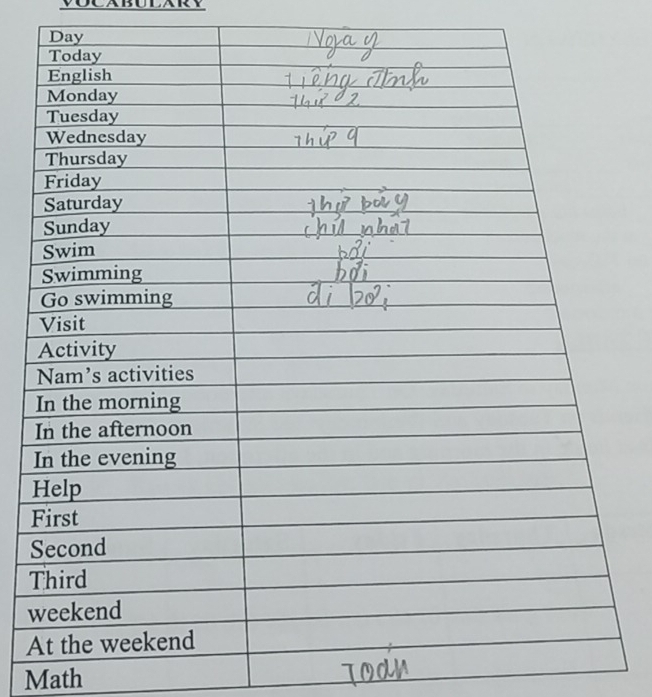 VOCABULARY
Day Ngày
Today
English tiếng Anh
Monday thứ 2
Tuesday
Wednesday thứ 4
Thursday
Friday
Saturday thứ bảy
Sunday chủ nhật
Swim bơi
Swimming bơi
Go swimming đi bơi
Visit
Activity
Nam's activities
In the morning
In the afternoon
In the evening
Help
First
Second
Third
weekend
At the weekend
Math Toán